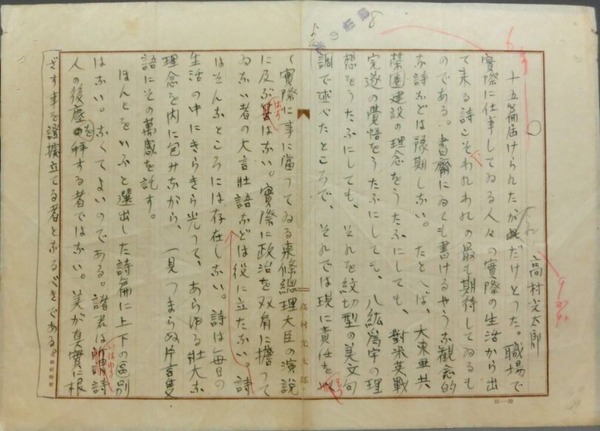 高村光太郎
十五篇届けられたが此だけとつた。職場で
実際に仕事してゐる人々の実際の生活から出
て来る詩こそわれわれの最も期待してゐるも
のである。書斎にゐても書けるやうな観念的
な詩などは予期しない。たとへば、大東亜共
栄圏建設の理念をうたふにしても、対米英戦
完遂の覚悟をうたふにしても、八紘為宇の理
想をうたふにしても、それを紋切型の美文句
調で述べたところで、それでは現に責任を以
て実際に事に當つてゐる東條總理大臣の演説
に及ぶ筈はない。実際に政治を双肩に擔つて
ゐない者の大言壮語などは役に立たない。詩
はそんなところには存在しない。詩は毎日の
生活の中にきらきら光つて、あらゆる壮大な
理念を内に包みながら、一見つまらぬ片言隻
語にその萬感を託す。
ほんとをいふと選出した詩篇に上下の區別
はない。なくてよいのである。諸君は所謂詩
人の後塵を拝する者ではない。美が真實に根
ざす事を證據立てる者となるべきである。
高村光太郎